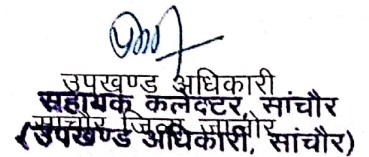 उपखण्ड अधिकारी
सहायक कलेक्टर, सांचौर
सांचौर जिला जालोर
(उपखण्ड अधिकारी, सांचौर)